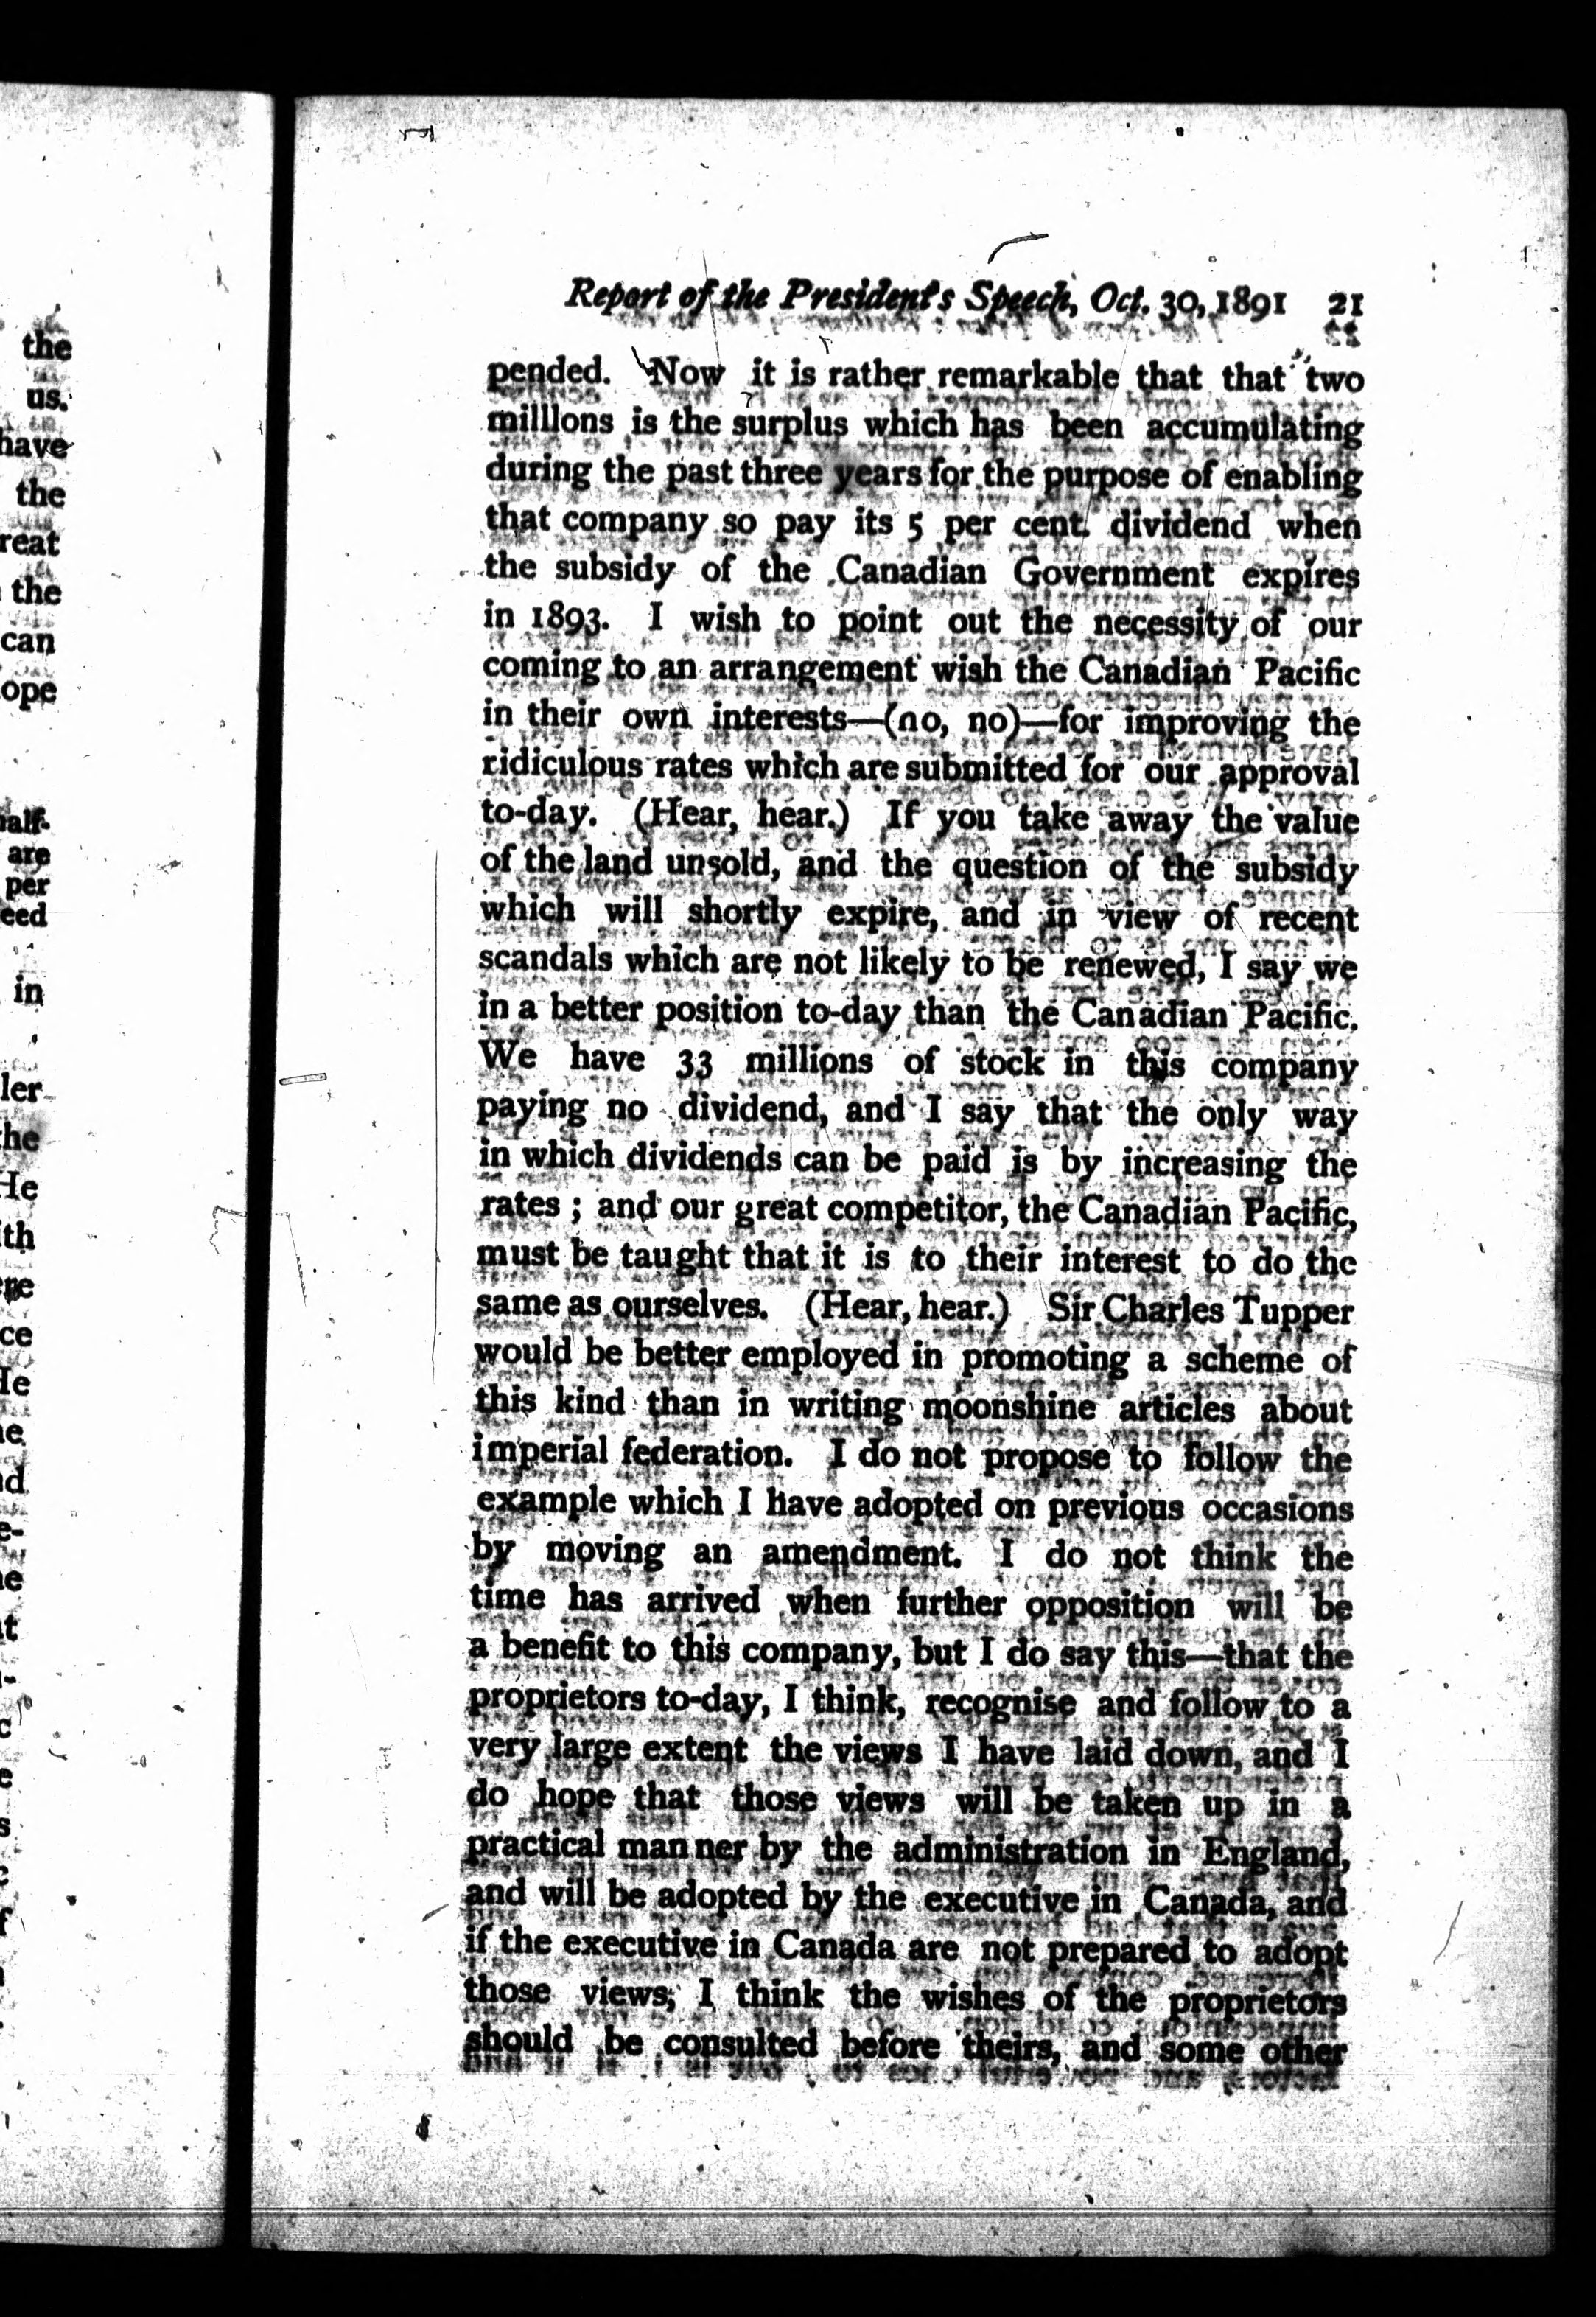 the
us.
have
the
reat
the
can
ope
half-
are
per
eed
in
ler-
the
He
ith
ere
ce
He
Report of the President's Speech, Oct. 30, 1891 21
pended. Now it is rather remarkable that that two
milllons is the surplus which has been accumulating
during the past three years for the purpose of enabling
that company so pay its 5 per cent. dividend when
the subsidy of the Canadian Government expires
in 1893. I wish to point out the necessity of our
coming to an arrangement wish the Canadian Pacific
in their own interests—(no, no)—for improving the
ridiculous rates which are submitted for our approval
to-day. (Hear, hear.) If you take away the value
of the land unsold, and the question of the subsidy
which will shortly expire, and in view of recent
scandals which are not likely to be renewed, I say we
in a better position to-day than the Canadian Pacific.
We have 33 millions of stock in this company
paying no dividend, and I say that the only way
in which dividends can be paid is by increasing the
rates ; and our great competitor, the Canadian Pacific,
must be taught that it is to their interest to do the
same as ourselves. (Hear, hear.) Sir Charles Tupper
would be better employed in promoting a scheme of
this kind than in writing moonshine articles about
imperial federation. I do not propose to follow the
example which I have adopted on previous occasions
by moving an amendment. I do not think the
time has arrived when further opposition will be
a benefit to this company, but I do say this—that the
proprietors to-day, I think, recognise and follow to a
very large extent the views I have laid down, and I
do hope that those views will be taken up in a
practical manner by the administration in England,
and will be adopted by the executive in Canada, and
if the executive in Canada are not prepared to adopt
those views, I think the wishes of the proprietors
should be consulted before theirs, and some other